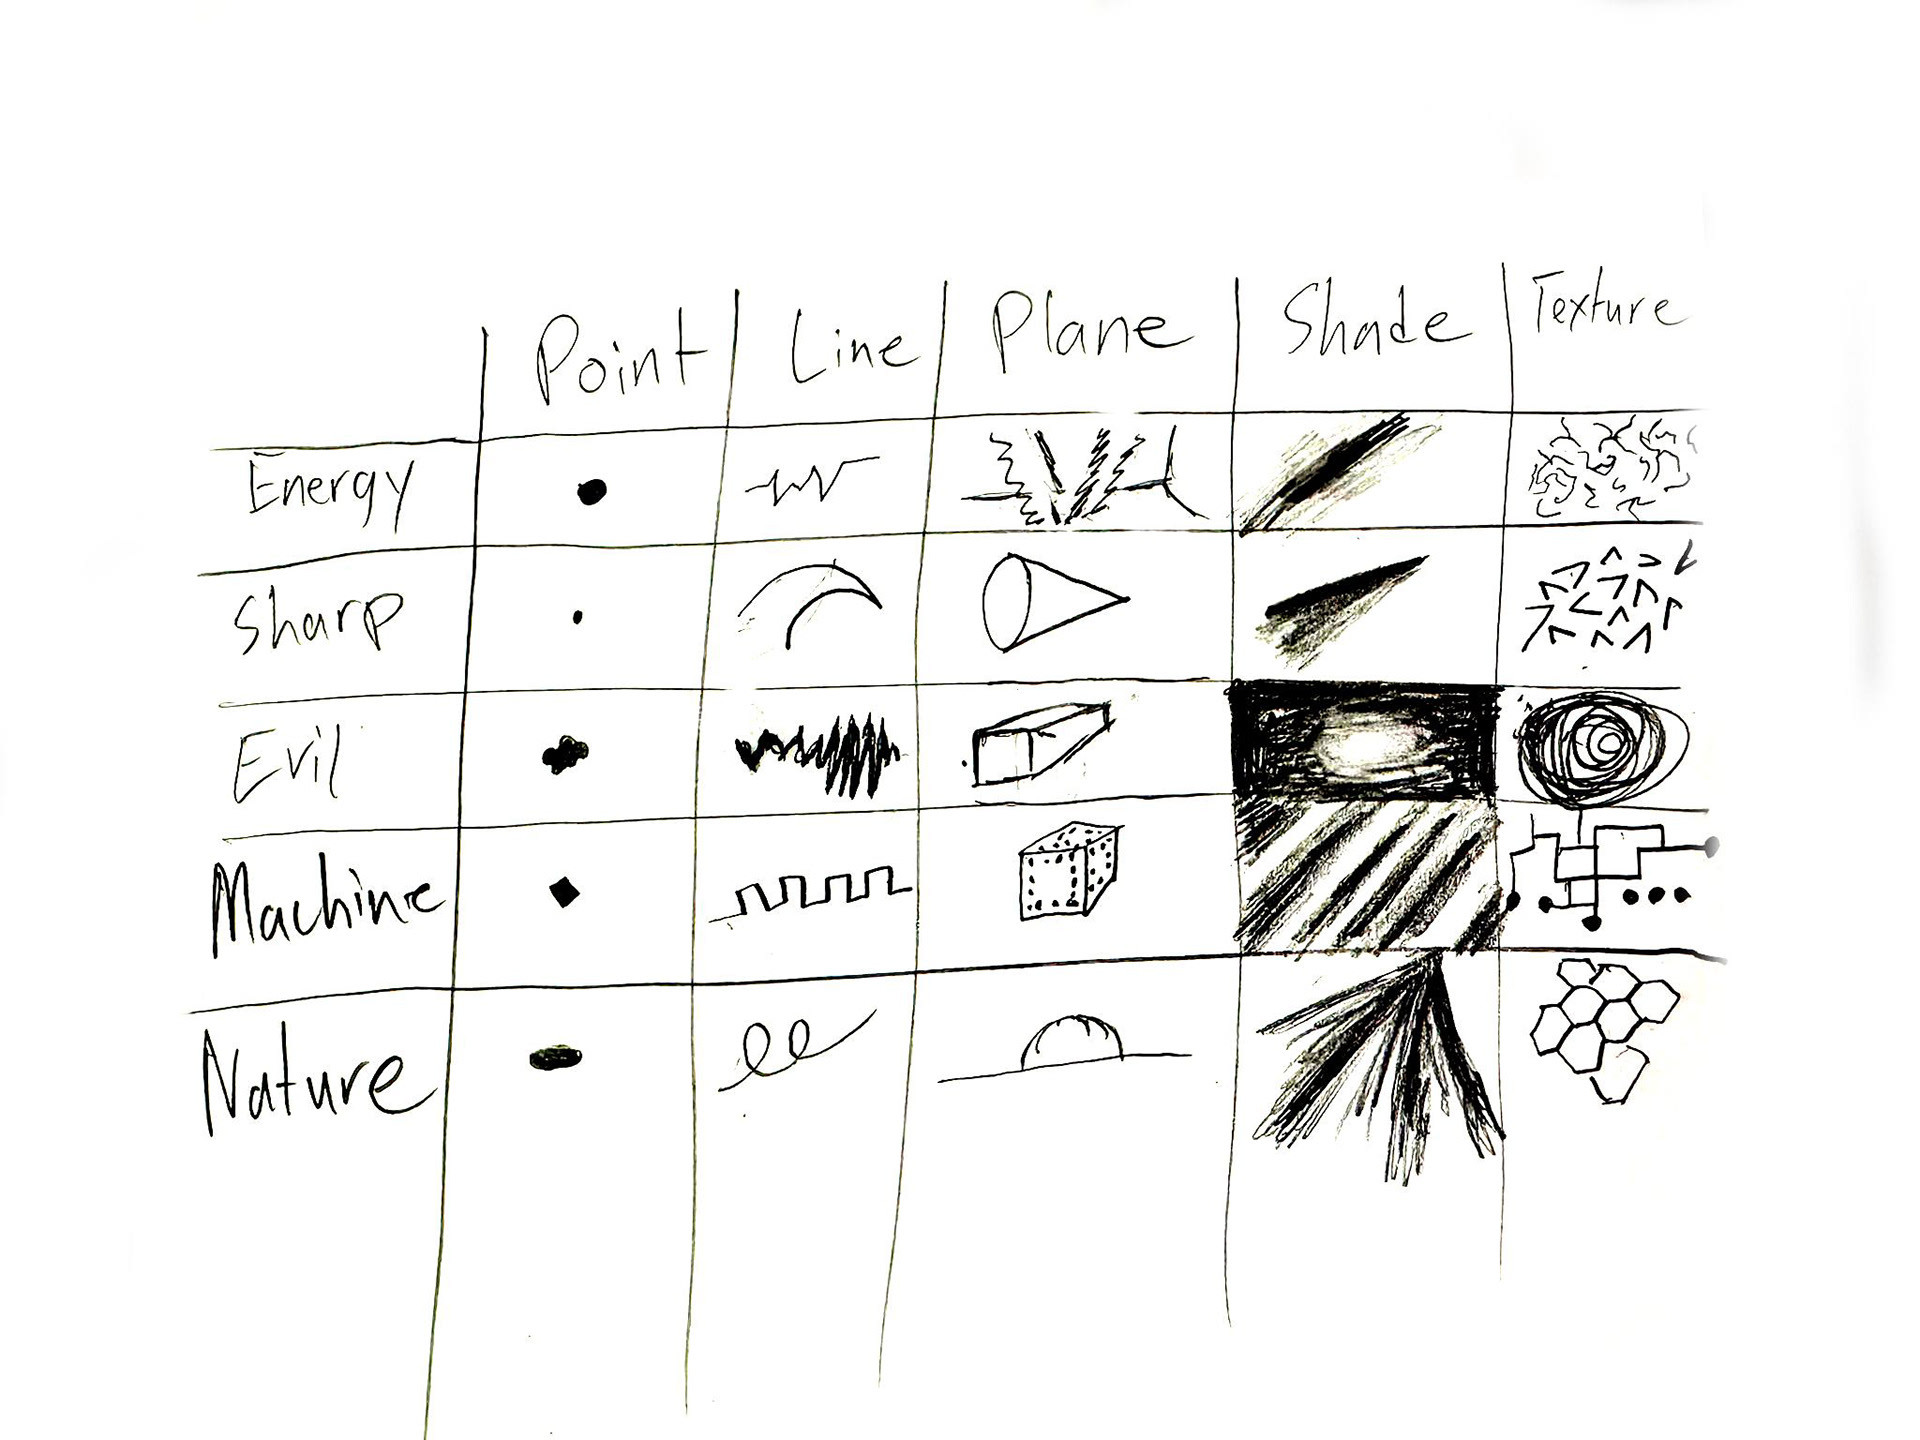 Point Line Plane Shade Texture
Energy
Sharp
Evil
Machine
Nature